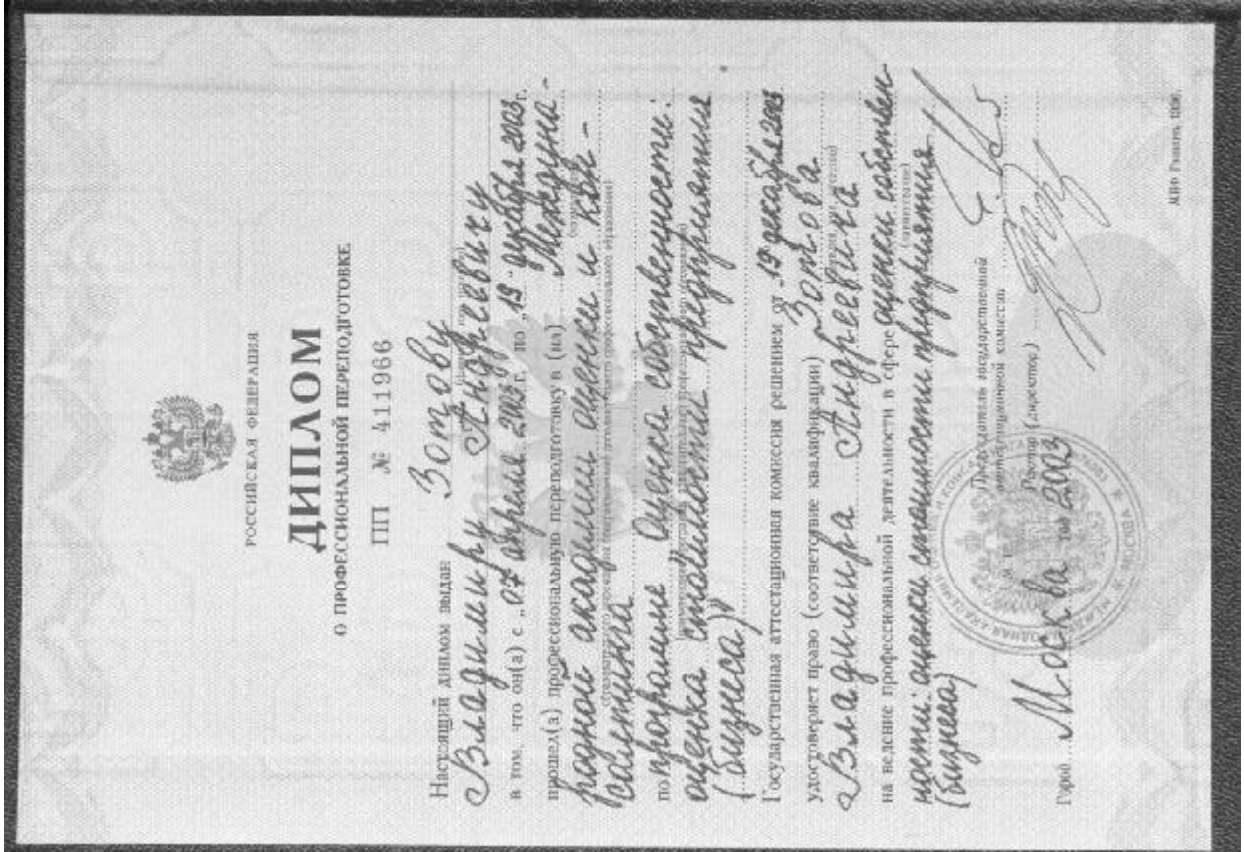 РОССИЙСКАЯ ФЕДЕРАЦИЯ
ДИПЛОМ
О ПРОФЕССИОНАЛЬНОЙ ПЕРЕПОДГОТОВКЕ
ПП № 411966
Настоящий диплом выдан Зотову
Владимиру Андреевичу
в том, что он(а) с „07" апреля 2003 г. по „19" декабря 2003 г.
прошел(а) профессиональную переподготовку в (на) Междуна-
родной академии оценки и кон-
салтинга
по программе Оценка собственности:
оценка стоимости предприятия
(бизнеса)
Государственная аттестационная комиссия решением от „19" декабря 2003
удостоверяет право (соответствие квалификации) Зотова
Владимира Андреевича
на ведение профессиональной деятельности в сфере оценки собствен-
ности: оценки стоимости предприятия
(бизнеса)
Председатель государственной
аттестационной комиссии
Ректор (директор)
Город Москва год 2003
МОСКВА